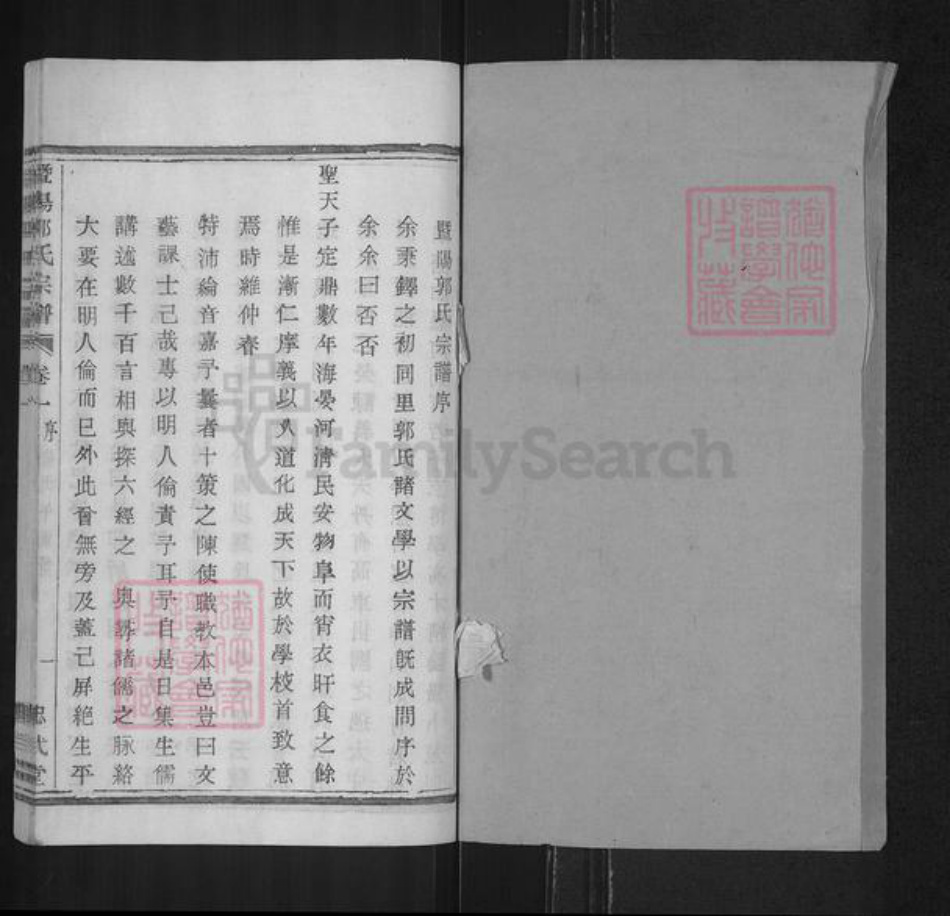 暨陽郭氏宗譜序
余秉鐸之初同里郭氏諸文學以宗譜旣成問序於
余余曰否否
聖天子定鼎數年海晏河清民安物阜而宵衣旰食之餘
惟是漸仁摩義以人道化成天下故於學校首致意
焉時維仲春
特沛綸音嘉予曩者十策之陳使職教本邑豈曰文
藝課士己哉專以明人倫責予耳予自是日集生儒
講述數千百言相與探六經之 奥 諸儒之脉絡
大要在明人倫而已外此曾無旁及蓋己屏絶生平
暨陽郭氏宗譜 卷一 序 一 忠武堂
猶他家
譜學會
收藏
猶他家
譜學會
收藏
FamilySearch